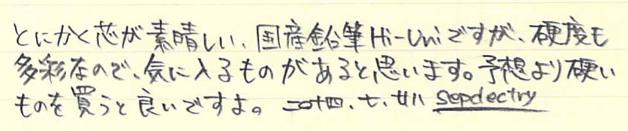 とにかく芯が素晴しい、国産鉛筆Hi-Uniですが、硬度も
多彩なので、気に入るものがあると思います。予想より硬い
ものを買うと良いですよ。二十四.七.廿八 sepdectry